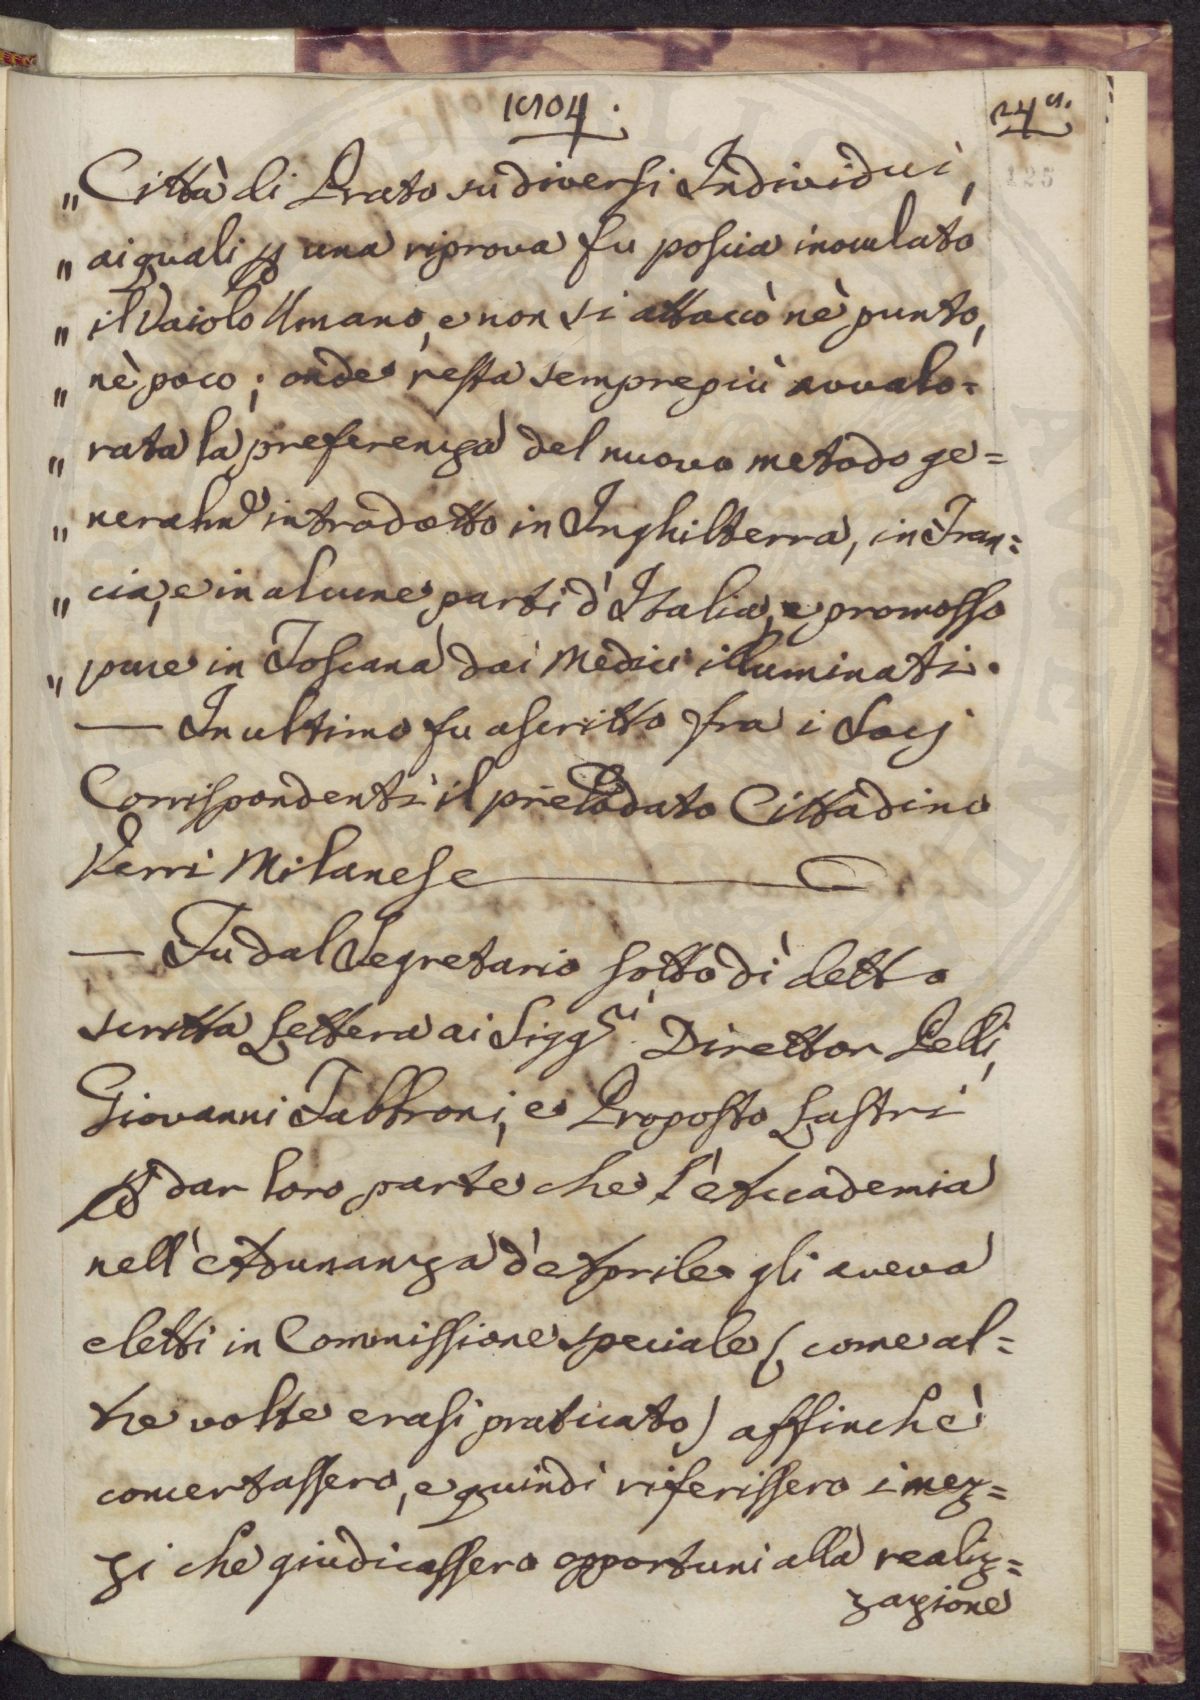 1804.
125
„ Città di Prato su diversi Individui,
„ ai quali p una riprova fu poscia inoculato
„ il Vaiolo Umano, e non si attaccò nè punto,
„ nè poco; onde resta semprepiù avvalo=
„ rata la preferenza del nuovo metodo ge=
„ neralm.e introdotto in Inghilterra, in Fran=
„ cia, e in alcune parti d'Italia, e promosso
„ pure in Toscana dai Medici illuminati.
— In ultimo fu ascritto fra i Socj
Corrispondenti il prelodato Cittadino
Verri Milanese
— Fu dal Segretario sotto dì detto
scritta Lettera ai Sigg.ri Direttor Pelli,
Giovanni Fabbroni, e Proposto Lastri
p dar loro parte che l'Accademia
nell'Adunanza d'Aprile gli aveva
eletti in Commissione speciale (come al=
tre volte erasi praticato) affinchè
concertassero, e quindi riferissero i mez=
zi che giudicassero opportuni alla realiz=
zazione